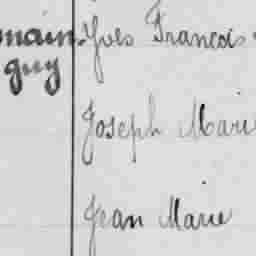 main Yves François
guy
Joseph Marie
Jean Marie